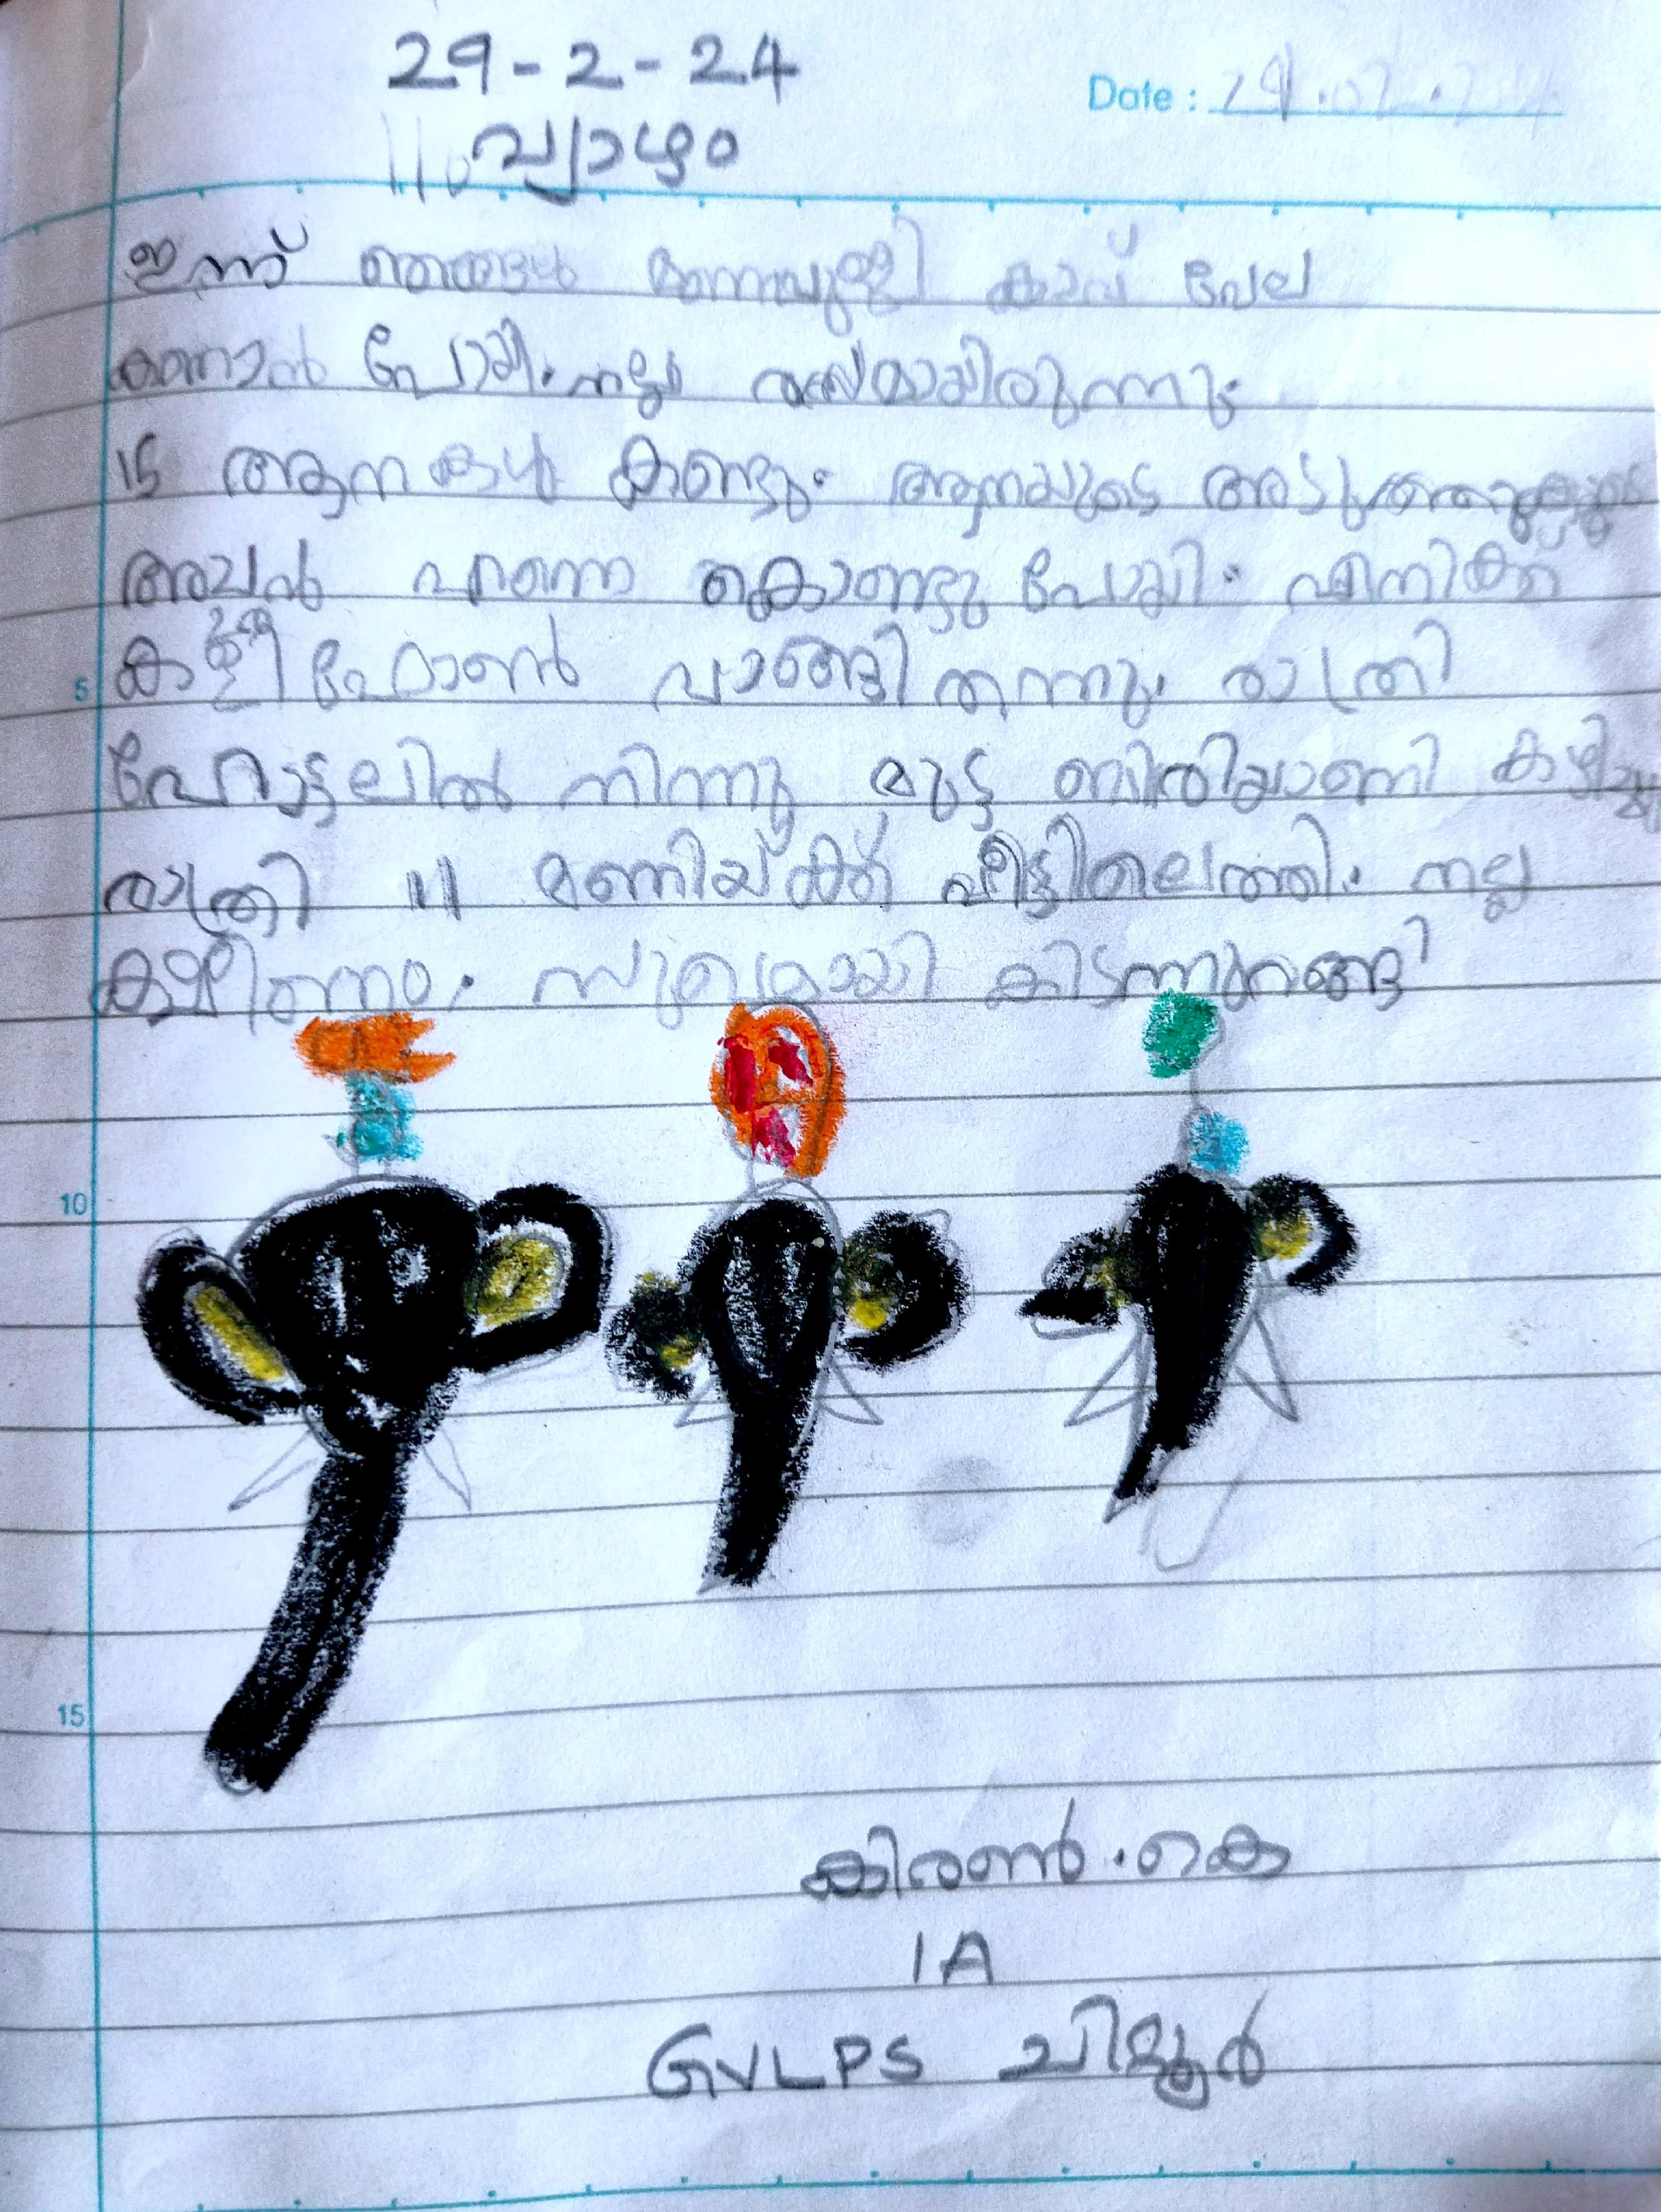 29-2-24
Date : 29.02.24
വ്യാഴം
ഇന്ന് ഞങ്ങൾ കാവ് വേല
കാണാൻ പോയി. നല്ല രസമായിരുന്നു.
15 ആനകൾ കണ്ടു. ആനയുടെ
അച്ഛൻ എന്നെ കൊണ്ടു പോയി. എനിക്ക്
5
ഫോൺ വാങ്ങി തന്നു. രാത്രി
ഹോട്ടലിൽ നിന്നു മുട്ട ബിരിയാണി കഴിച്ചു
രാത്രി 11 മണിയ്ക്ക് വീട്ടിലെത്തി. നല്ല
ക്ഷീണം. സുഖമായി കിടന്നുറങ്ങി
10
15
കിരൺ.കെ
1A
GVLPS ചിറ്റൂർ